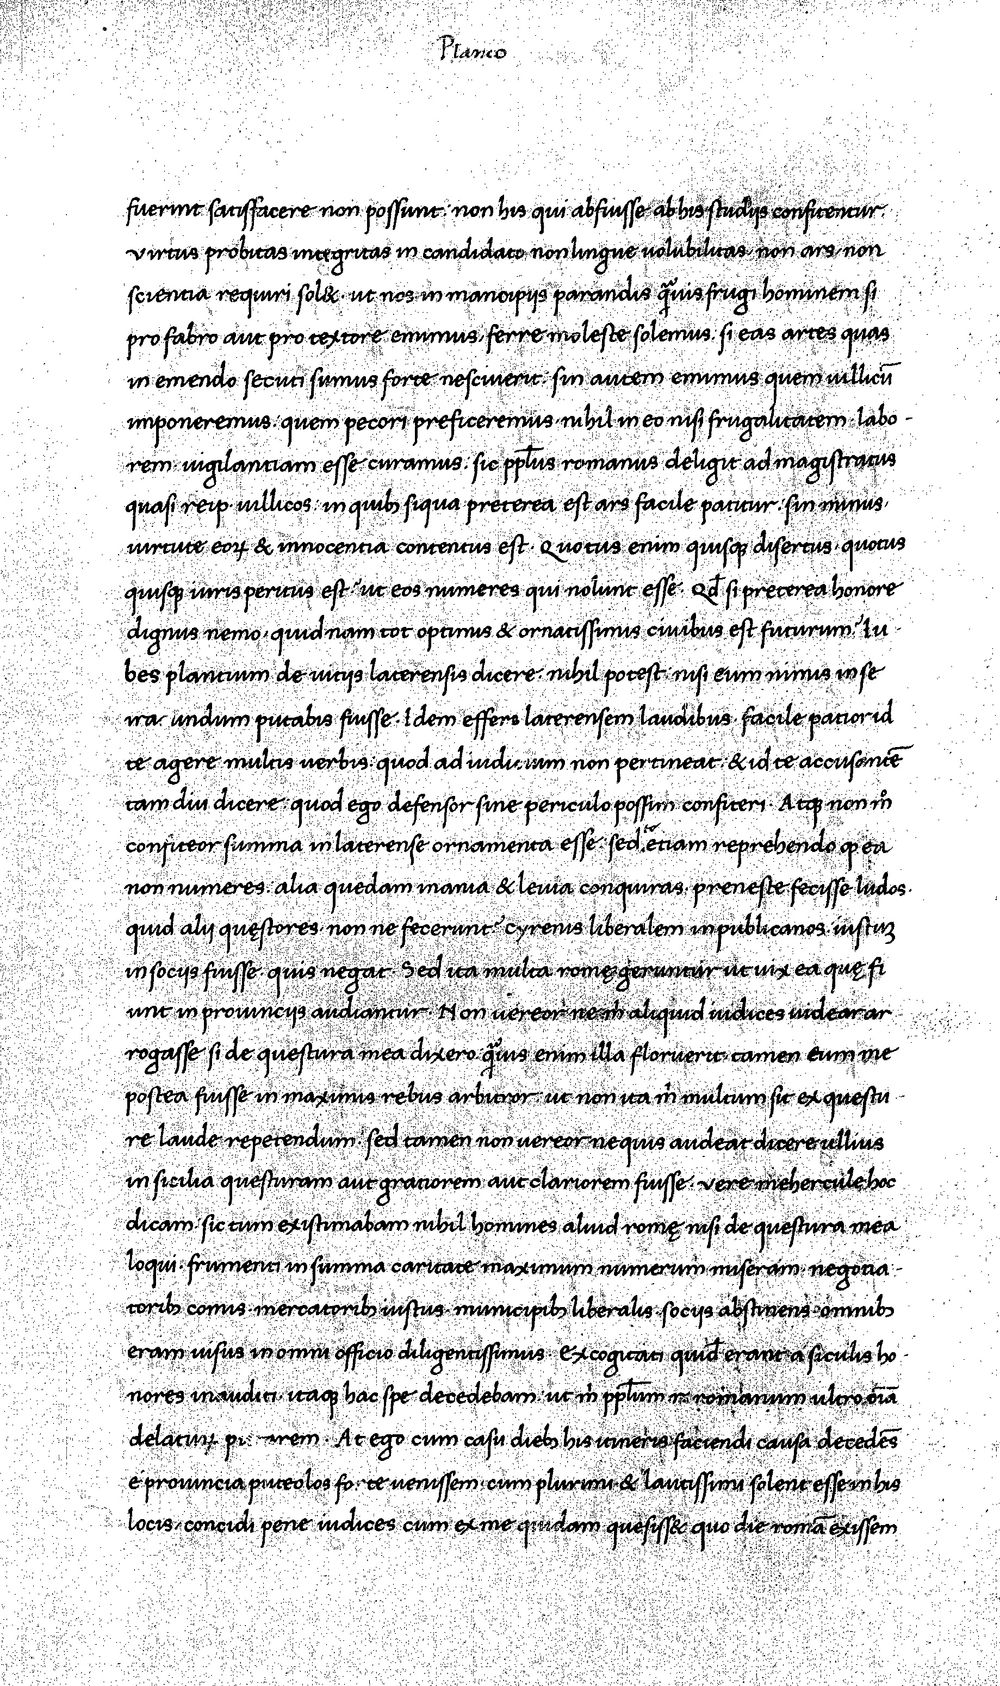 Planco
fuerint satisfacere non possunt. non his qui abfuisse ab his studijs confitentur.
virtus probitas integritas in candidato non lingue uolubilitas. non ars. non
scientia requiri sol&. ut nos in mancipijs parandis q̃uis frugi hominem si
pro fabro aut pro textore emimus. ferre moleste solemus. si eas artes quas
in emendo secuti sumus forte nesciuerit. sin autem emimus quem uillicū
imponeremus. quem pecori preficeremus. nihil in eo nisi frugalitatem. labo-
rem. uigilantiam esse curamus. sic pp̄lus romanus deligit ad magistratus
quasi reip. uillicos. in quibꝫ siqua preterea est ars facile patitur. sin minus.
uirtute eoꝝ & innocentia contentus est. Quotus enim quisqꝫ disertus. quotus
quisqꝫ iuris peritus est. ut eos numeres qui nolunt esse. Qd̄ si preterea honore
dignus nemo. quid nam tot optimis & ornatissimis ciuibus est futurum? Iu
bes plancium de uitijs laterensis dicere. nihil potest. nisi eum nimis in se
ira undum putabis fuisse. Idem effers laterensem laudibus. facile patior id
te agere multis uerbis. quod ad iudi um non pertineat. & id te accusantē
tam diu dicere. quod ego defensor sine periculo possim confiteri. Atqꝫ non m̊
confiteor summa in laterense ornamenta esse. sed te etiam reprehendo ꝙ ea
non numeres. alia quedam inania & leuia conquiras. preneste fecisse ludos.
quid alij quęstores. non ne fecerunt? Cyrenis liberalem in publicanos. iustuꝫ
in socijs fuisse. quis negat. Sed ita multa romę geruntur ut uix ea quę fi
unt in prouincijs audiantur. Non uereor ne m̊ aliquid iudices uidear ar
rogasse si de questura mea dixero. q̃uis enim illa floruerit. tamen eum me
postea fuisse in maximis rebus arbitror. ut non ita m̊ multum sit ex questu
re laude repetendum. sed tamen non uereor nequis audeat dicere ullius
in sicilia questuram aut gratiorem aut clariorem fuisse. vere mehercule hoc
dicam. sic tum existimabam nihil homines aliud romę nisi de questura mea
loqui. frumenti in summa caritate maximum numerum miseram. negotia-
toribꝫ comis. mercatoribꝫ iustus. municipibꝫ liberalis. socijs abstinens. omnibꝫ
eram uisus in omni officio diligentissimus. Excogitati quid̄ erant a siculis ho-
nores inauditi. itaqꝫ hac spe decedebam. ut m̊ pp̄lum romanum ultro oīa
delaturꝝ pu arem. At ego cum casu diebꝫ his itineris faciendi causa decedēs
e prouincia puteolos forte uenissem. cum plurimi & lautissimi solent esse in his
locis. concidi pene iudices cum ex me quidam quesiss& quo die romā exissem